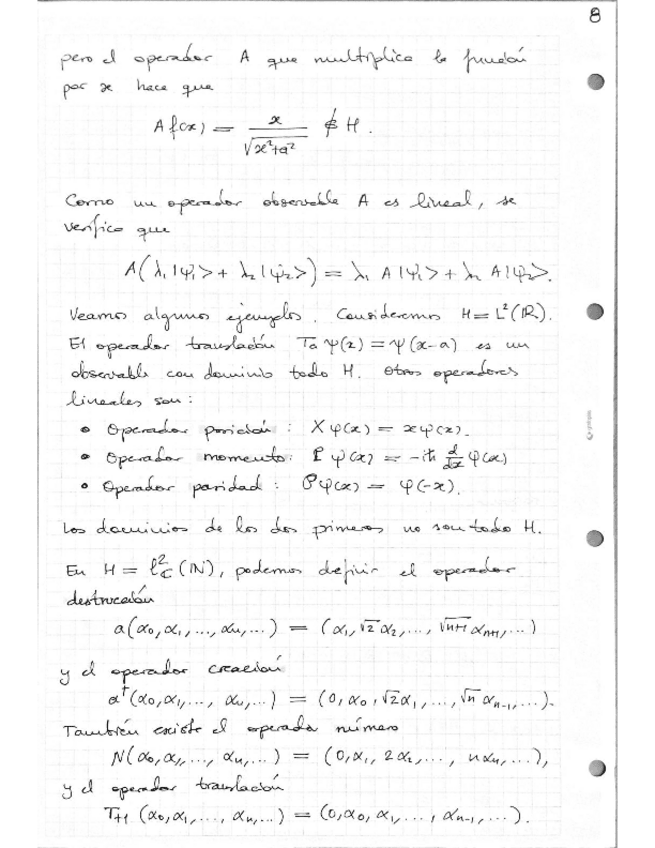 8
pero el operador A que multiplica la función
por x hace que
A f(x) = x / √(x²+a²) ∉ H.
Como un operador observable A es lineal, se
verifica que
A(λ₁|ψ₁> + λ₂|ψ₂>) = λ₁ A|ψ₁> + λ₂ A|ψ₂>.
Veamos algunos ejemplos. Consideremos H = L²(ℝ).
El operador translación Ta ψ(x) = ψ(x-a) es un
observable con dominio todo H. Otros operadores
lineales son:
• Operador posición : X φ(x) = xφ(x).
• Operador momento: P ψ(x) = -iħ d/dx φ(x)
• Operador paridad : P φ(x) = φ(-x).
Los dominios de los dos primeros no son todo H.
En H = ℓ²_C(ℕ), podemos definir el operador
destrucción
a(α₀,α₁,...,αₙ,...) = (α₁, √2 α₂,..., √n+1 αₙ₊₁,...)
y el operador creación
a†(α₀,α₁,..., αₙ,...) = (0, α₀, √2 α₁,..., √n αₙ₋₁,...).
También existe el operador número
N(α₀,α₁,..., αₙ,...) = (0, α₁, 2α₂,..., nαₙ,...),
y el operador translación
T₊₁ (α₀,α₁,..., αₙ,...) = (0,α₀, α₁,..., αₙ₋₁,...).